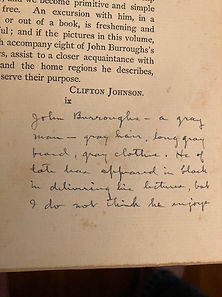 , and we become primitive and simple
free. An excursion with him, in a
or out of a book, is freshening and
ful; and if the pictures in this volume,
h accompany eight of John Burroughs's
s, assist to a closer acquaintance with
and the home regions he describes,
serve their purpose.
CLIFTON JOHNSON.
ix
John Burroughs – a gray
man – gray hair, long gray
beard, gray clothes. He of
late has appeared in black
in delivering his lectures, but
I do not think he enjoys